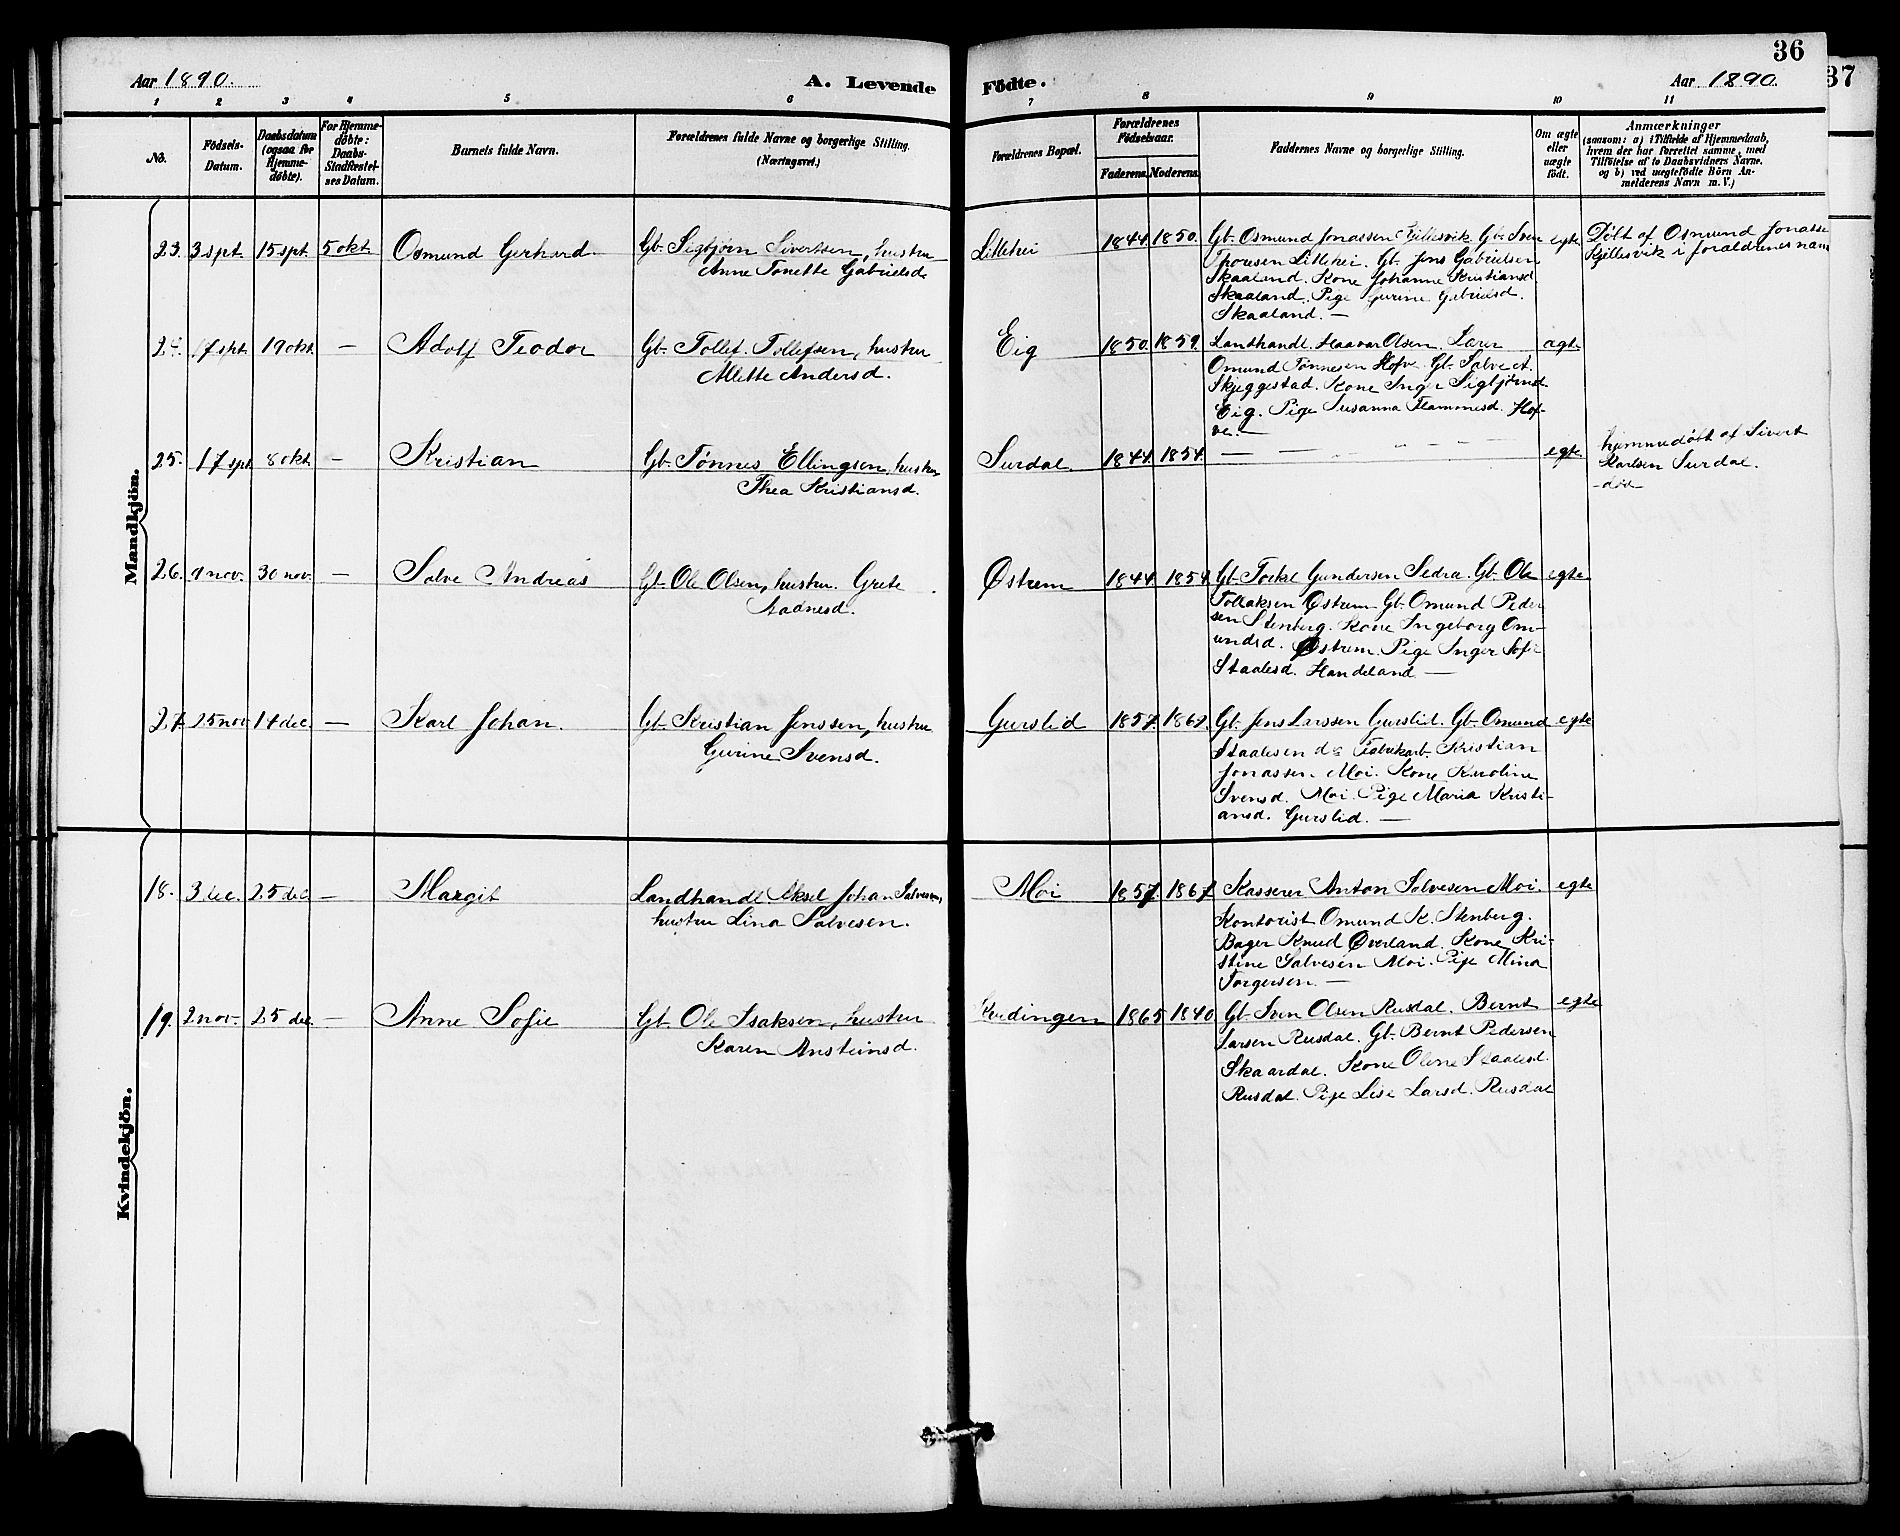 36
37
Aar 1890.
A. Levende Födte.
Aar 1890.
1 2 3 4 5 6 7 8 9 10 11
No.
Födsels-Datum.
Daabsdatum (ogsaa for Hjemme-döbte).
For Hjemme-döbte: Daabs-Stadfæstel-ses Datum.
Barnets fulde Navn.
Forældrenes fulde Navne og borgerlige Stilling. (Næringsvei.)
Forældrenes Bopæl.
Forældrenes Födselsaar.
Faderens. Moderens.
Faddernes Navne og borgerlige Stilling.
Om ægte eller uægte födt.
Anmærkninger
(saasom: a) i Tilfælde af Hjemmedaab, hvem der har forrettet samme, med Tilföielse af to Daabsvidners Navne. og b) ved uægtefödte Börn An-melderens Navn m. V.)
Mandkjön.
23. 3 spt. 15 spt. 5 okt. Osmund Gerhard. Gb. Sigbjørn Sivertsen, hustru
Anne Tonette Gabrielsd.
Lillehei 1844. 1850. Gb. Osmund Jonassen Kjellesvik Gb. Sven
Sporesen Lillehei. Gb. Jens Gabrielsen
Skaaland. Kone Johanne Kristiansd.
Skaaland. Pige Gurine Gabrielsd.
Skaaland. —
egte Døbt af Osmund Jonasse
Kjellesvik i forældrenes navn
24. 17 spt. 19 okt. — Adolf Teodor Gb. Tollef Tollefsen, hustru
Alette Andersd.
Eig 1850. 1859. Landhandl. Haavar Olsen. Lærer
Omund Tønnesen Hofve. Gb. Salve A.
Skjeggestad. Kone Inger Sigbjørnsd.
Eig. Pige Susanna Flammesd. Hof-
ve. —
ægte
25. 17 spt. 8 okt. — Kristian Gb. Tønnes Ellingsen, hustru
Thea Kristiansd.
Surdal. 1844. 1854. — — — — — egte hjemmedøbt af Sivert
Karlsen Surdal.
- død -
26. 9 nov. 30 nov. — Salve Andreas Gb. Ole Olsen, hustru Grete
Aadnesd.
Østrem 1844. 1854. Gb. Torkel Gundersen Sedra. Gb. Ole
Tollaksen Østrem Gb. Omund Peder
sen Stenberg. Kone Ingeborg Om-
undsd. Østrem. Pige Inger Sofie
Staalesd. Handeland —
egte
27. 25 nov. 14 dec. — Karl Johan. Gb. Kristian Jenssen, hustru
Gurine Svensd.
Gurslid 1857. 1862. Gb. Jens Larssen Gurslid. Gb. Omund
Staalesen do Fabrikarb. Kristian
Jonassen Moi. Kone Karoline
Svensd. Moi. Pige Maria Kristi-
ansd. Gurslid. —
egte
Kvindekjön.
18. 3 dec. 25 dec — Margit Landhandl. Aksel Johan Salvesen,
hustru Lina Salvesen.
Moi 1857. 1867. Kasserer Anton Salvesen Moi.
Kontorist Omund K. Stenberg.
Bager Knud Øverland. Kone Kri-
stine Salvesen Moi. Pige Mina
Torgersen —
egte
19. 2 nov. 25 dec. — Anne Sofie Gb. Ole Isaksen, hustru
Karen Ansteinsd.
Kvedingen 1865 1840 Gb. Sven Olsen Rusdal. Bernt
Larsen Rusdal. Gb. Bernt Pedersen
Skaardal. Kone Olene Staalesd.
Rusdal. Pige Lise Larsd. Rusdal
egte